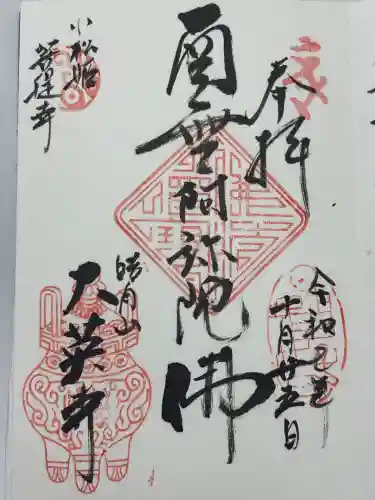 奉拝
令和元年
十月廿五日
南無阿弥陀佛
皓月山
大英寺
小松姫
菩提寺